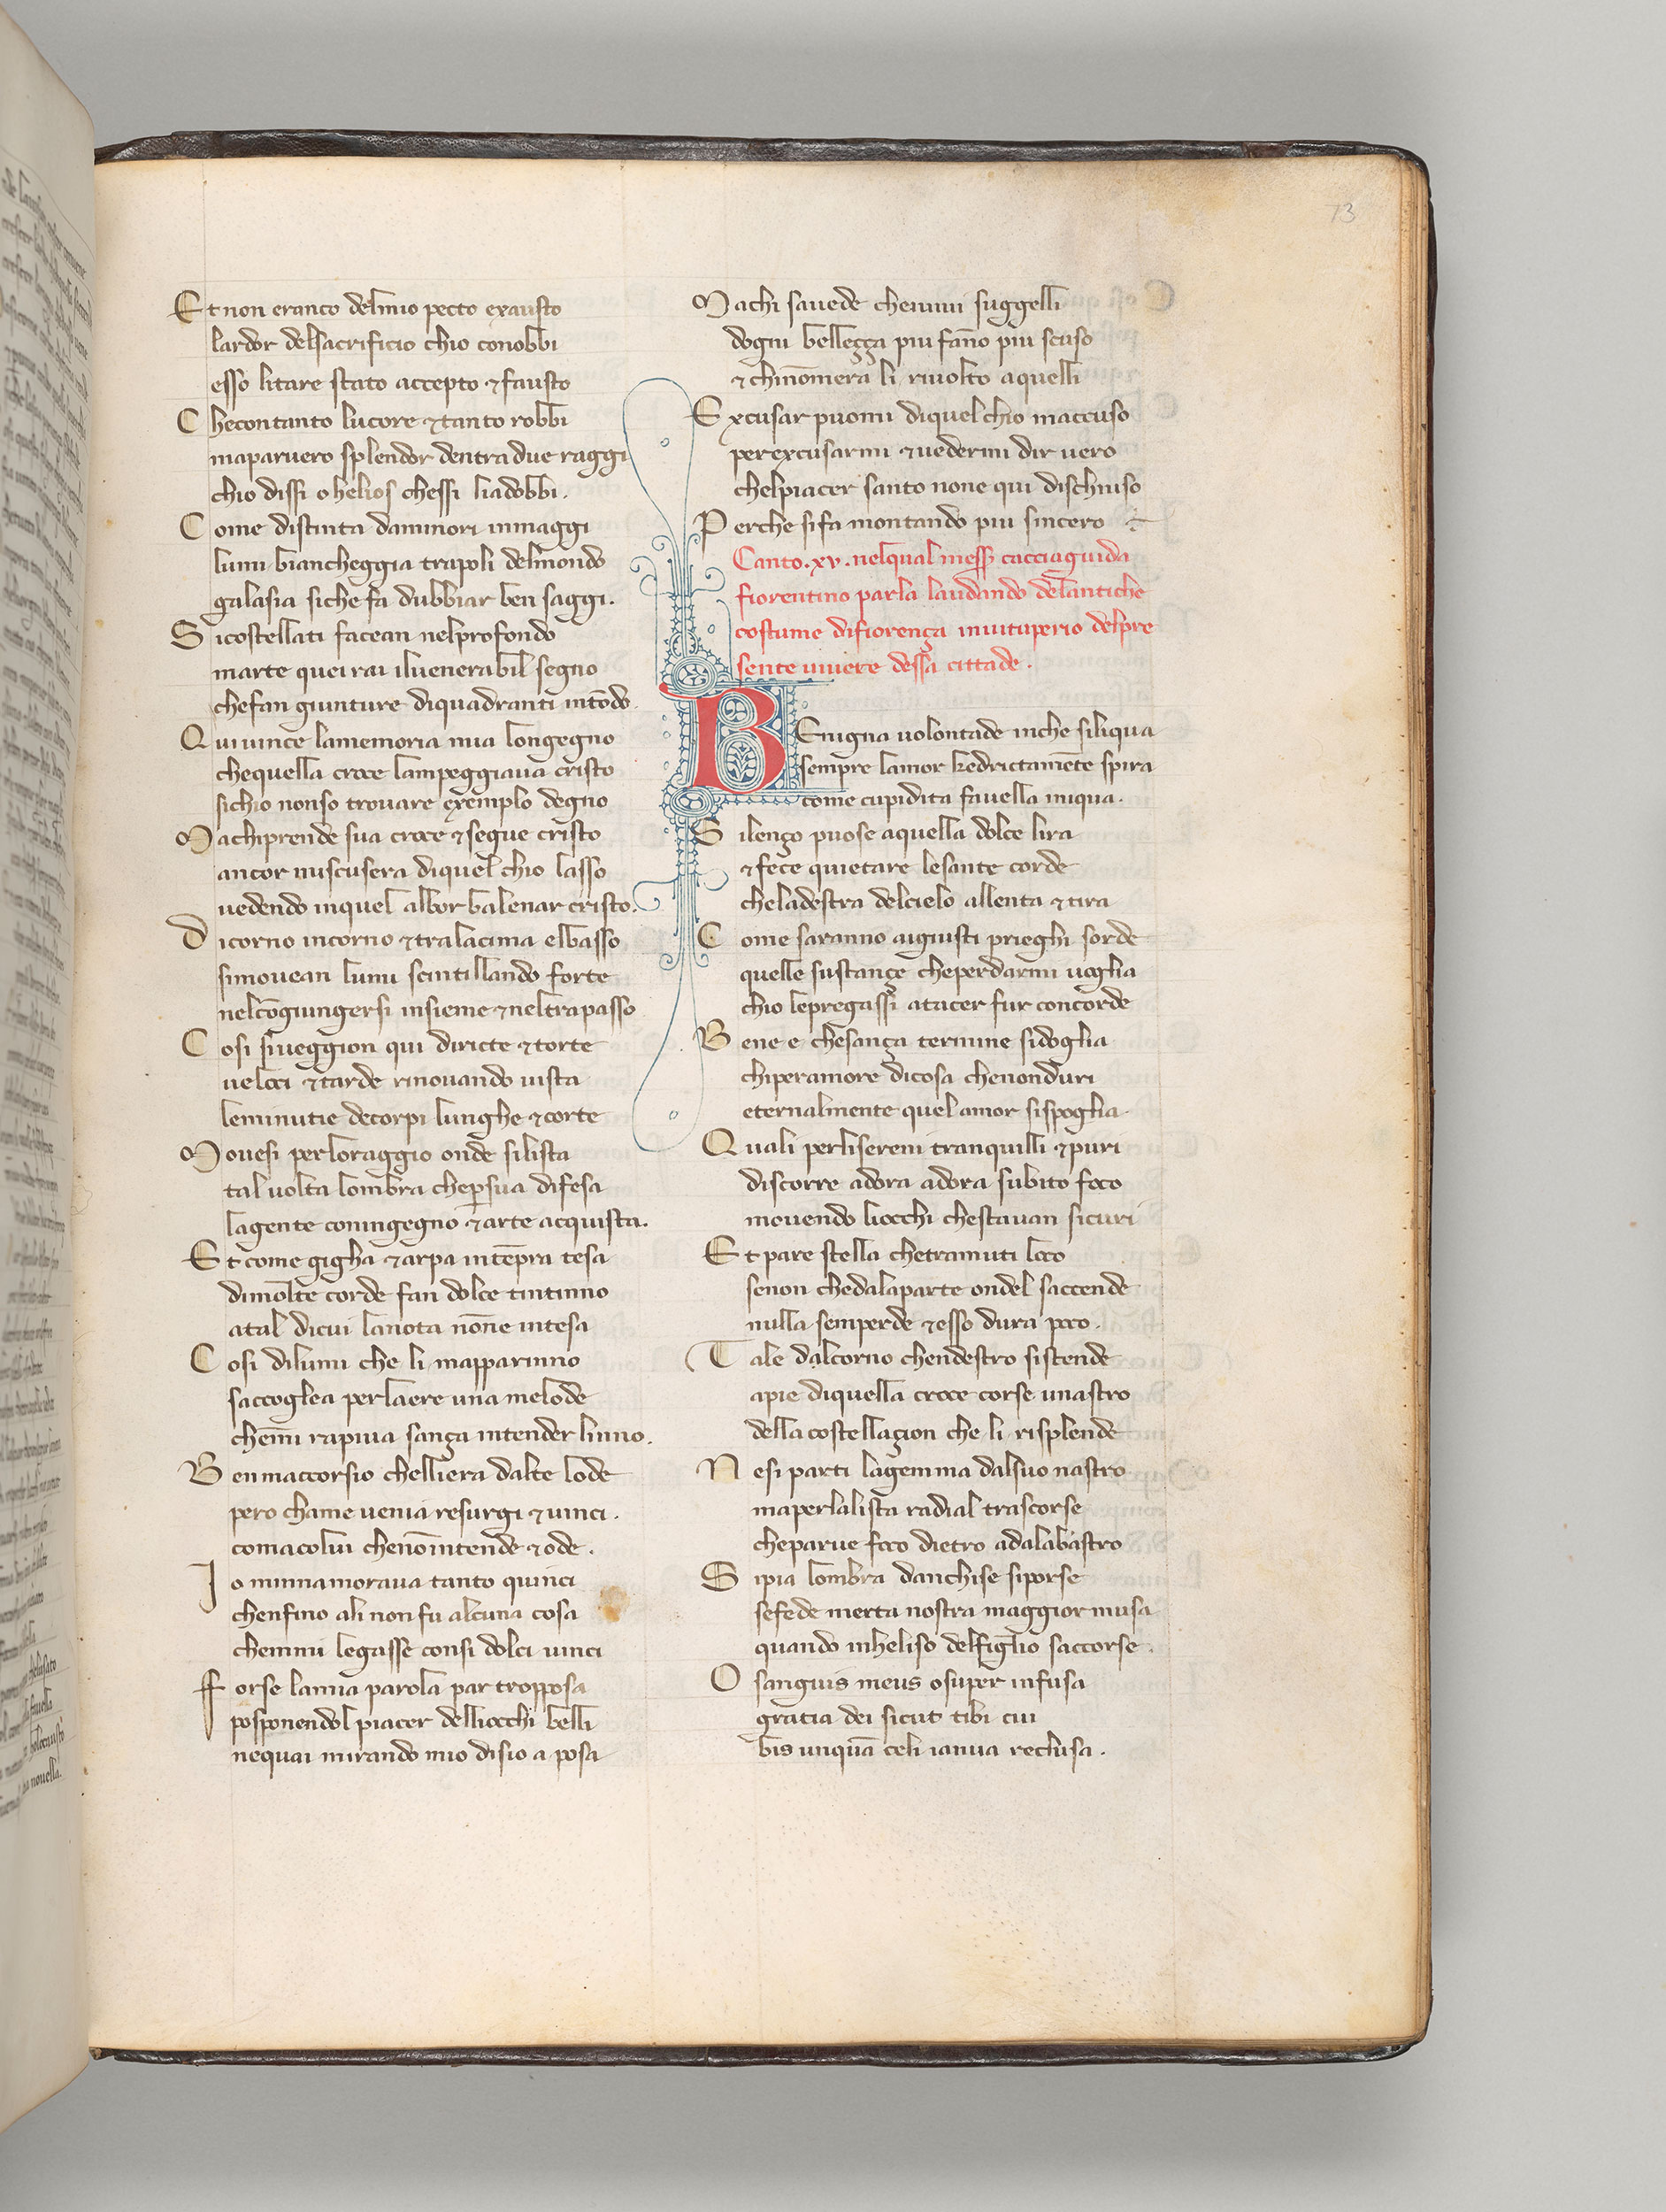 73
Et non eranco delmio pecto exausto
lardor delsacrificio chio conobbi
esso litare stato accepto & fausto
Checontanto lucore & tanto robbi
maparuero splendor dentradue raggi
chio dissi o helios chessi liadobbi.
Come distinta daminori inmaggi
lumi biancheggia trapoli delmondo
galasia sichefa dubbiar ben saggi.
Sicostellati facean nelprofondo
marte quei rai iluenerabil segno
chefan giunture diquadranti intōdo.
Qui uince lamemoria mia longegno
chequella croce lampeggiaua cristo
sichio nonso trouare exemplo degno
Machiprende sua croce & segue cristo
ancor miscusera diquel chio lasso
uedendo inquel albor balenar cristo.
Dicorno incorno & tralacima elbasso
simouean lumi scintillando forte
nelcōgiungersi insieme & neltrapasso
Cosi siueggion qui diricte & torte
ueloci & tarde rinouando uista
leminutie decorpi lunghe & corte
Mouesi perloraggio onde silista
tal uolta lombra chepersua difesa
lagente coningegno & arte acquista.
Et come gigha & arpa intēpra tesa
dimolte corde fan dolce tintinno
atal dicui lanota nōne intesa
Cosi dilumi che li mapparinno
saccoglea perlaere una melode
chemi rapiua sança intender linno.
Benmaccorsio chelliera dalte lode
pero chame uenia resurgi & uinci.
comacolui chenōintende & ode.
Io minnamoraua tanto quinci
chenfino ali nonfu alcuna cosa
chemmi legasse consi dolci uinci
Forse lamia parola par tropposa
posponendol piacer delliocchi belli
nequai mirando mio disio a posa
Machi sauede cheuiui suggelli
dogni belleçça piu fāno piu suso
& chinōmera li riuolto aquelli
Excusar puomi diquel chio maccuso
perexcusarmi & uedermi dir uero
chelpiacer santo none qui dischiuso
Perche sifa montando piu sincero
Canto .xv. nelqual mess cacciaguida
fiorentino parla laudando delantiche
costume difiorença inuituperio delpre
sente uiuere dessa cittade.
BEnigna uolontade inche siliqua
sempre lamor kedrictamēte spira
come cupidita fauella iniqua.
Silenço puose aquella dolce lira
& fece quietare lesante corde
cheladestra delcielo allenta & tira
Come saranno aigiusti prieghi sorde
quelle sustançe cheperdarmi uoglia
chio lepregassi atacer fur concorde
Bene e chesança termine sidoglia
chiperamore dicosa chenonduri
eternalmente quel amor sispoglia.
Quali perlisereni tranquilli & puri
discorre adora adora subito foco
mouendo liocchi chestauan sicuri
Et pare stella chetramuti loco
senon chedalaparte ondel saccende
nulla semperde & esso dura poco.
Tale dalcorno chendestro sistende
apie diquella croce corse unastro
della costellaçion che li risplende
Nesi parti lagemma dalsuo nastro
maperlalista radial trascorse
cheparue foco dietro adalabastro
Sipia lombra danchise siporse
sefede merta nostra maggior musa
quando inheliso delfiglio saccorse.
O sanguis meus osuper infusa
gratia dei sicut tibi cui
bis unquā celi ianua reclusa.